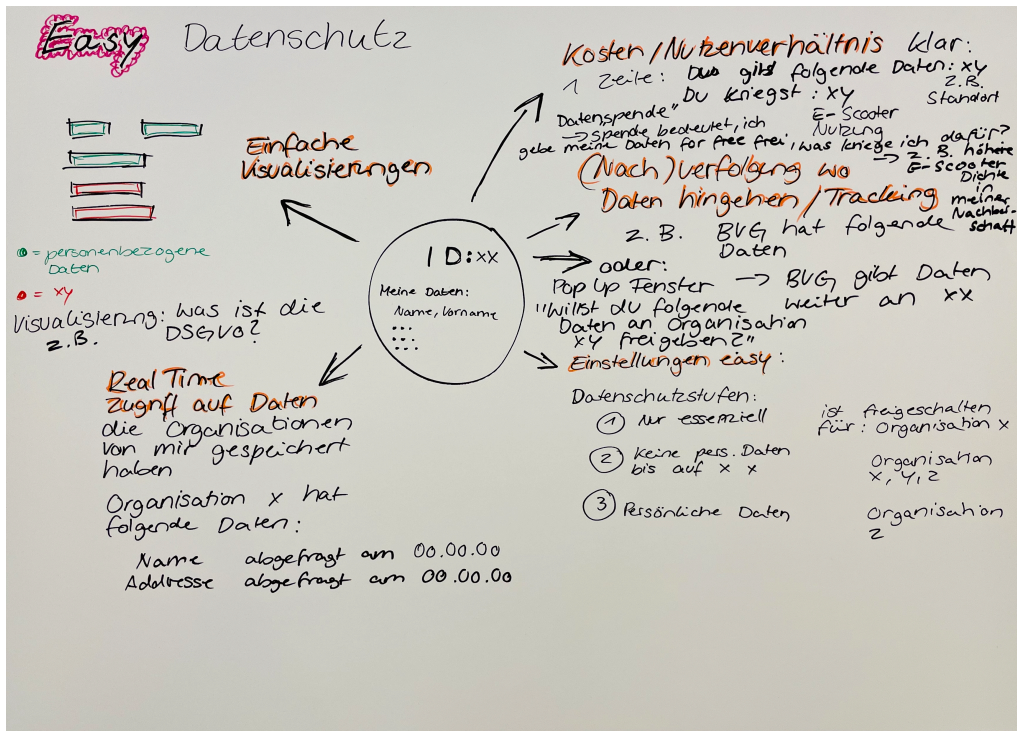 Easy Datenschutz
Einfache
Visualisierungen
= personenbezogene
Daten
= xy
Visualisierung: was ist die
z.B. DSGVO?
Real Time
Zugriff auf Daten
die Organisationen
von mir gespeichert
haben
Organisation x hat
folgende Daten:
Name abgefragt am 00.00.00
Addresse abgefragt am 00.00.00
ID:xx
Meine Daten:
Name, Vorname
Kosten/Nutzenverhältnis klar:
1 Zeile: Du gibst folgende Daten: xy
z.B.
Standort
Du kriegst: xy
E-Scooter
Nutzung
Datenspende"
→ spende bedeutet, ich
gebe meine Daten for free frei, was kriege ich dafür?
→ z.B. höhere
E-Scooter
Dichte
in
meiner
Nachbar-
schaft
(Nach)verfolgung wo
Daten hingehen/Tracking
z.B. BVG hat folgende
Daten
→ BVG gibt Daten
weiter an xx
oder:
Pop Up Fenster
"Willst du folgende
Daten an Organisation
xy freigeben?"
Einstellungen easy:
Datenschutzstufen:
1 Nur essenziell
ist freigeschalten
für: Organisation x
2 Keine pers. Daten
bis auf x x
Organisation
x, y, z
3 Persönliche Daten
Organisation
z